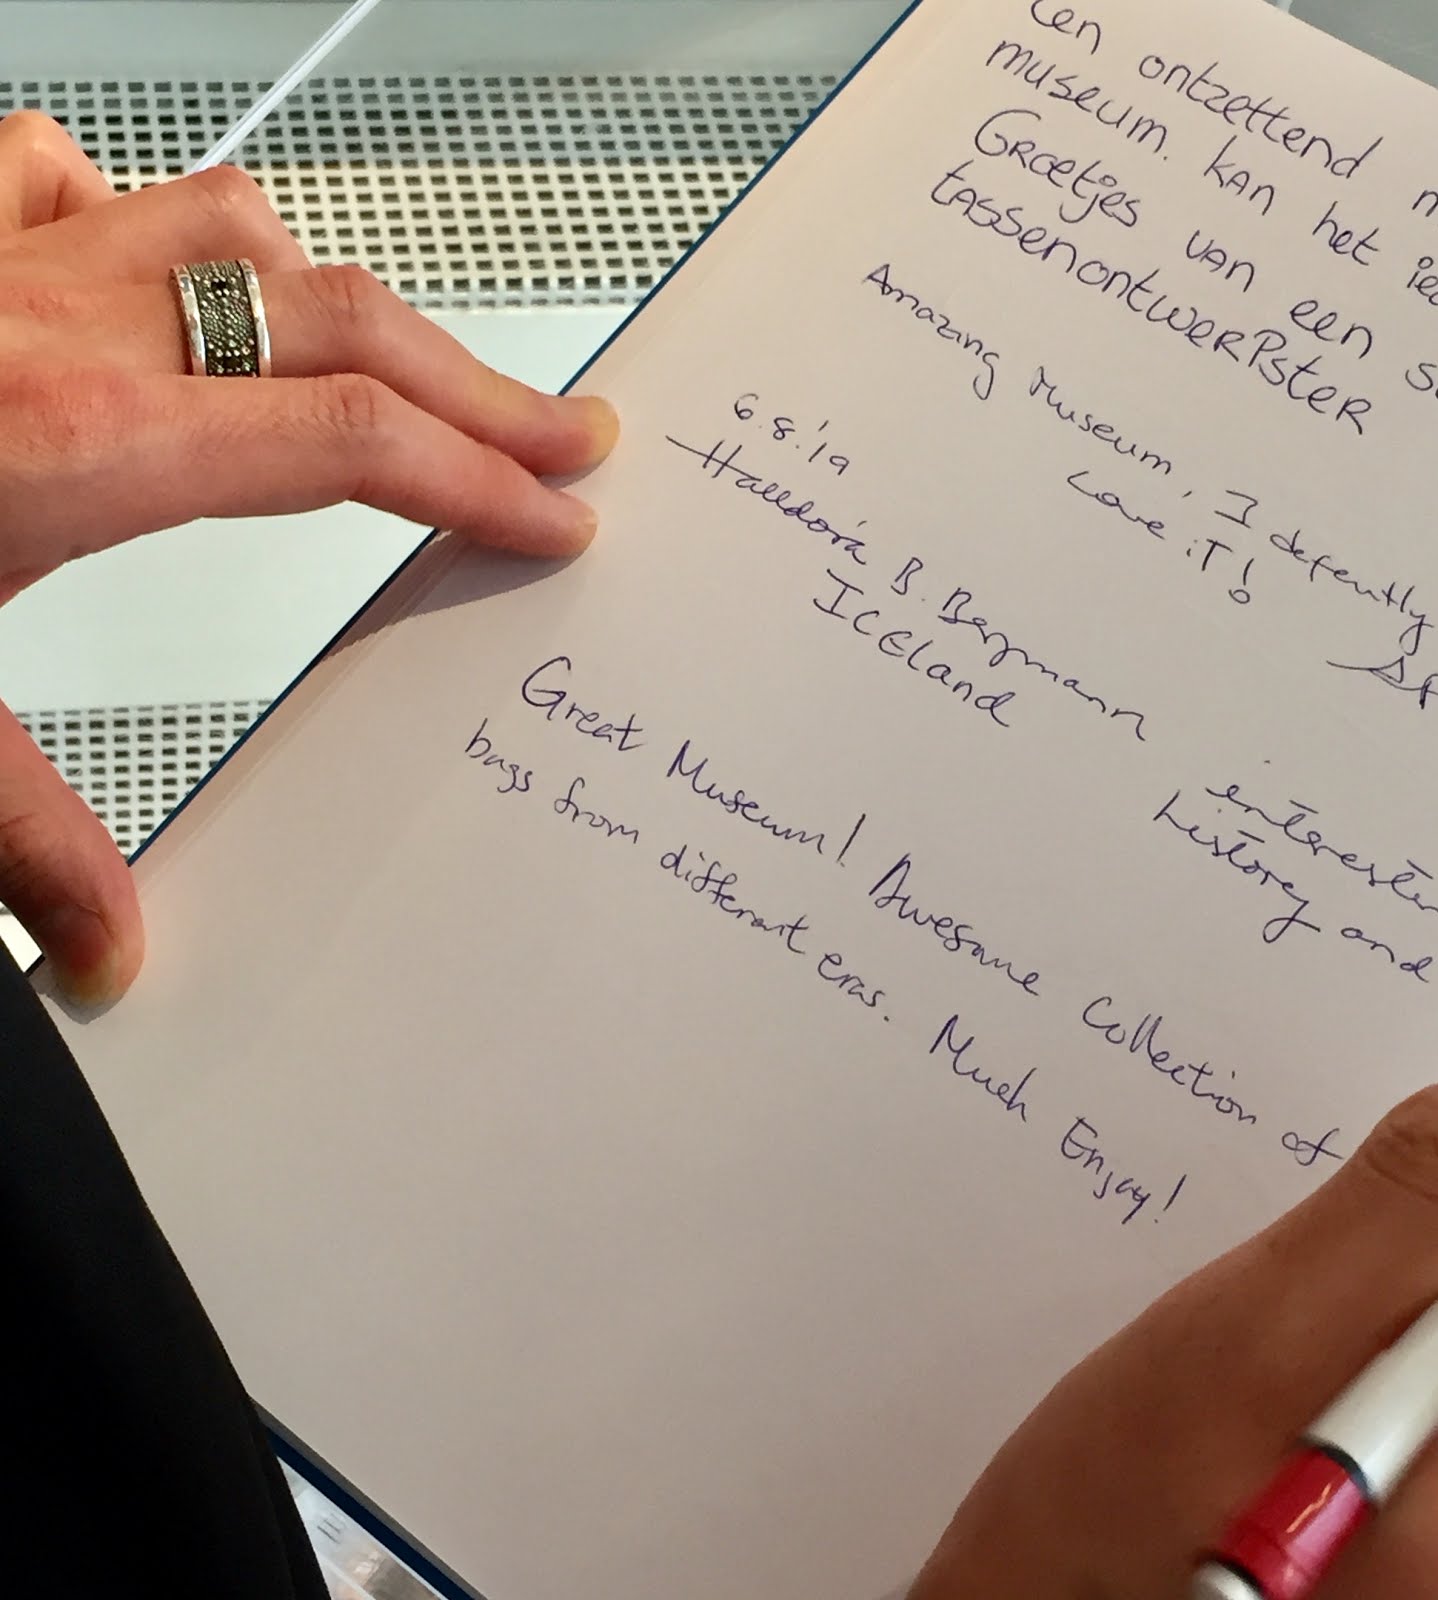 Een ontzettend
museum. Kan het
Groetjes van een
tassenontwerpster
Amazing Museum, I defently
Love iT!
6.8.'19
Halldóra B. Bergmann
ICEland
interester
history and
Great Museum! Awesome Collection of
bags from different eras. Much Enjoy!